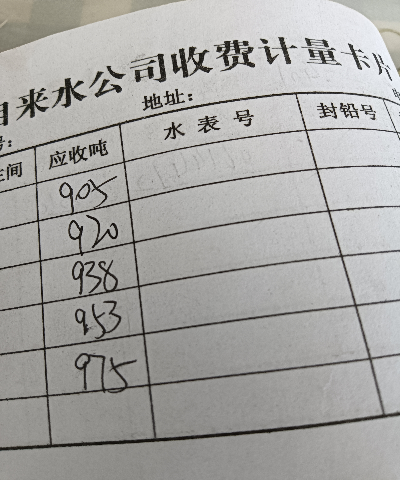 自来水公司收费计量卡片
号： 地址：
间 应收吨 水表号 封铅号
905
920
938
953
975